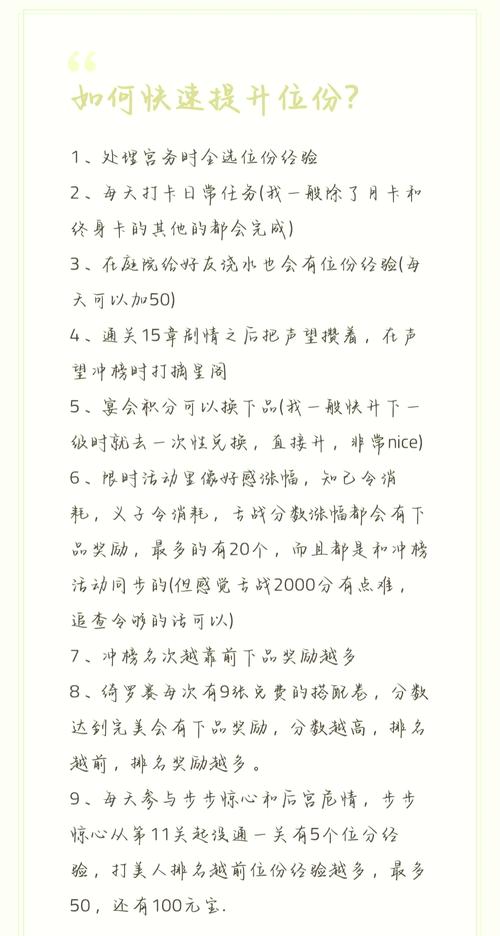 如何快速提升位份?
1、处理宫务时全选位份经验
2、每天打卡日常任务(我一般除了月卡和
终身卡的其他的都会完成)
3、在庭院给好友浇水也会有位份经验(每
天可以加50)
4、通关15章剧情之后把声望攒着，在声
望冲榜时打摘星阁
5、宴会积分可以换下品(我一般快升下一
级时就去一次性兑换，直接升，非常nice)
6、限时活动里像好感涨幅，知己令消
耗，义子令消耗，舌战分数涨幅都会有下
品奖励，最多的有20个，而且都是和冲榜
活动同步的(但感觉舌战2000分有点难，
追查令够的话可以)
7、冲榜名次越靠前下品奖励越多
8、绮罗赛每次有9张免费的搭配卷，分数
达到完美会有下品奖励，分数越高，排名
越前，排名奖励越多。
9、每天参与步步惊心和后宫危情，步步
惊心从第11关起没通一关有5个位分经
验，打美人排名越前位份经验越多，最多
50，还有100元宝.